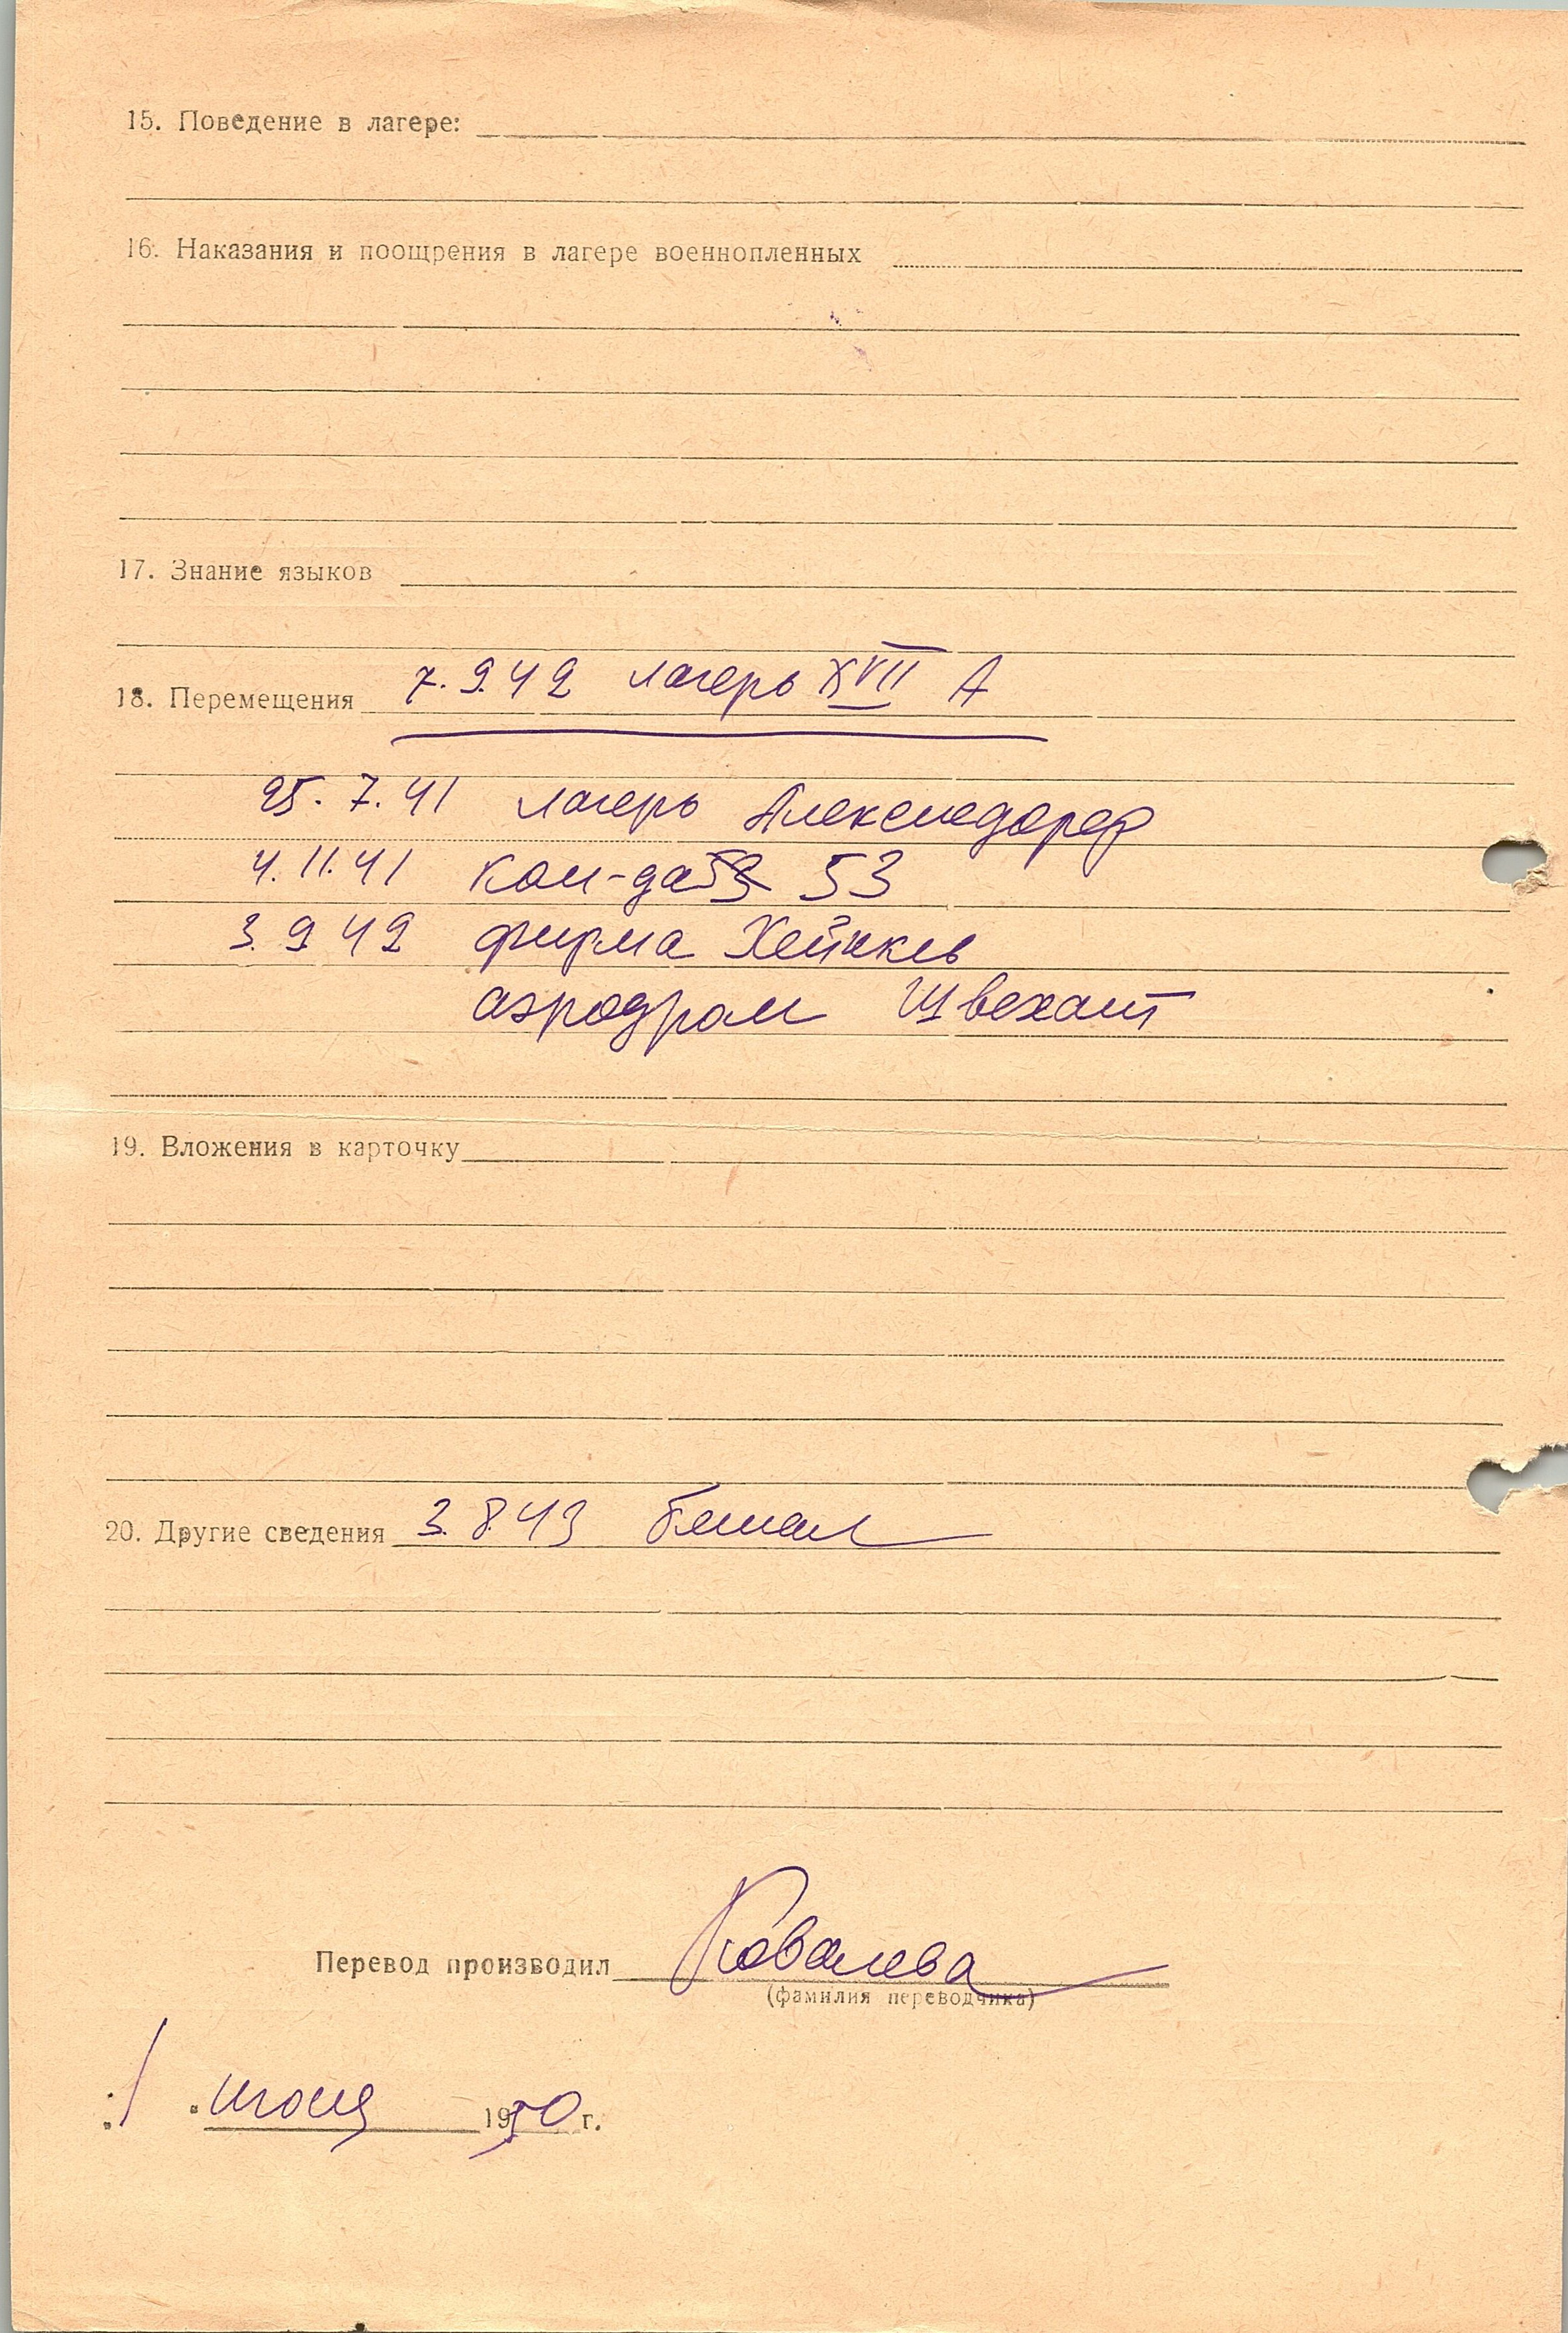 15. Поведение в лагере:
16. Наказания и поощрения в лагере военнопленных
17. Знание языков
18. Перемещения 7.9.42 лагерь XVII А
25.7.41 лагерь Алексисдорф
4.11.41 ком-да 53 53
3.9.42 фирма Хейнкель
аэродром Швехат
19. Вложения в карточку
20. Другие сведения 3.8.43 бежал
Перевод производил Ковалева
(фамилия переводчика)
"1" июня 1950 г.